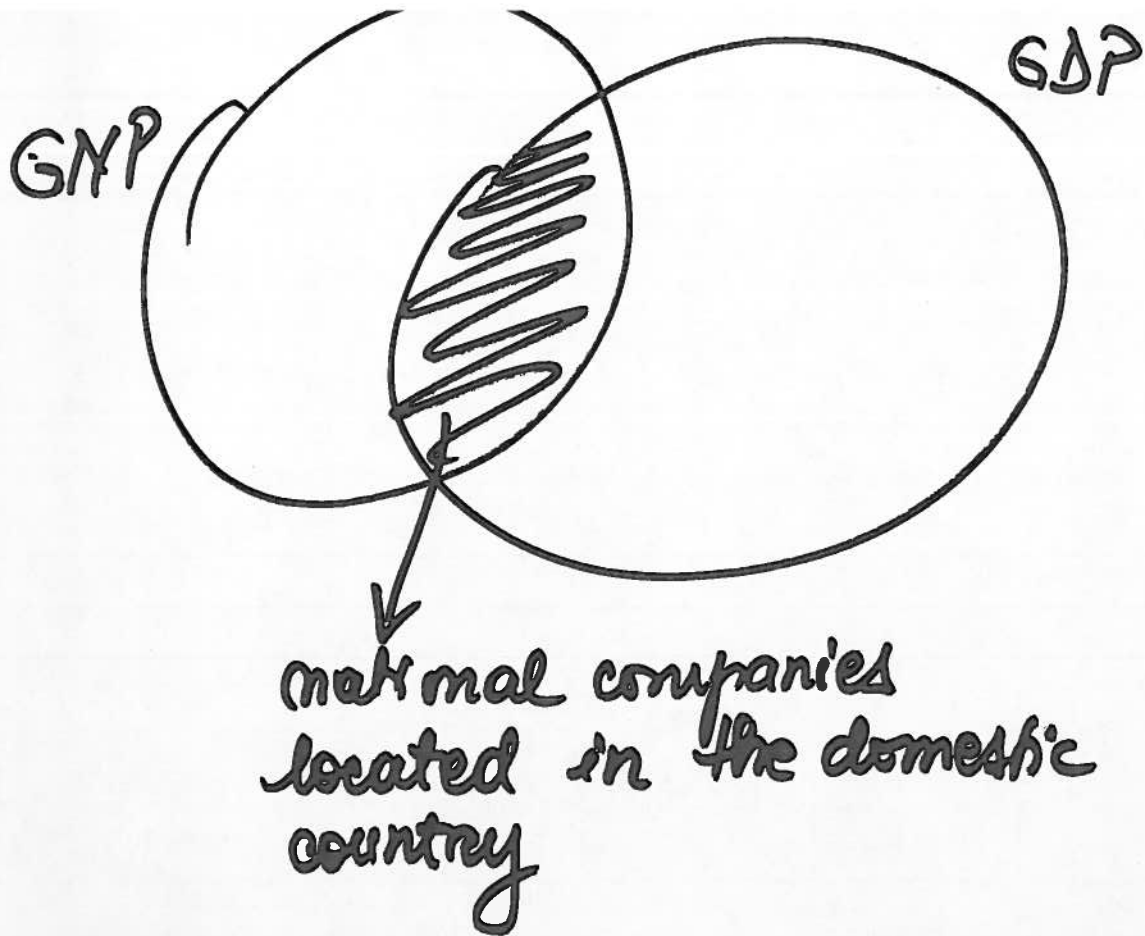 GNP
GDP
national companies
located in the domestic
country